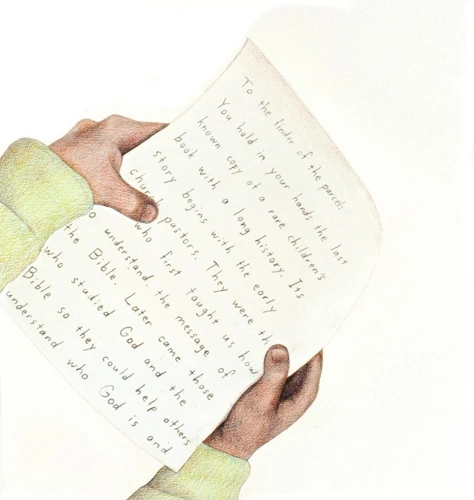 To the finder of the parcel:
You hold in your hands the last
known copy of a rare children's
book with a long history. Its
story begins with the early
church pastors. They were th
who first taught us how
o understand the message of
the Bible. Later came those
who studied God and the
Bible so they could help others
understand who God is and